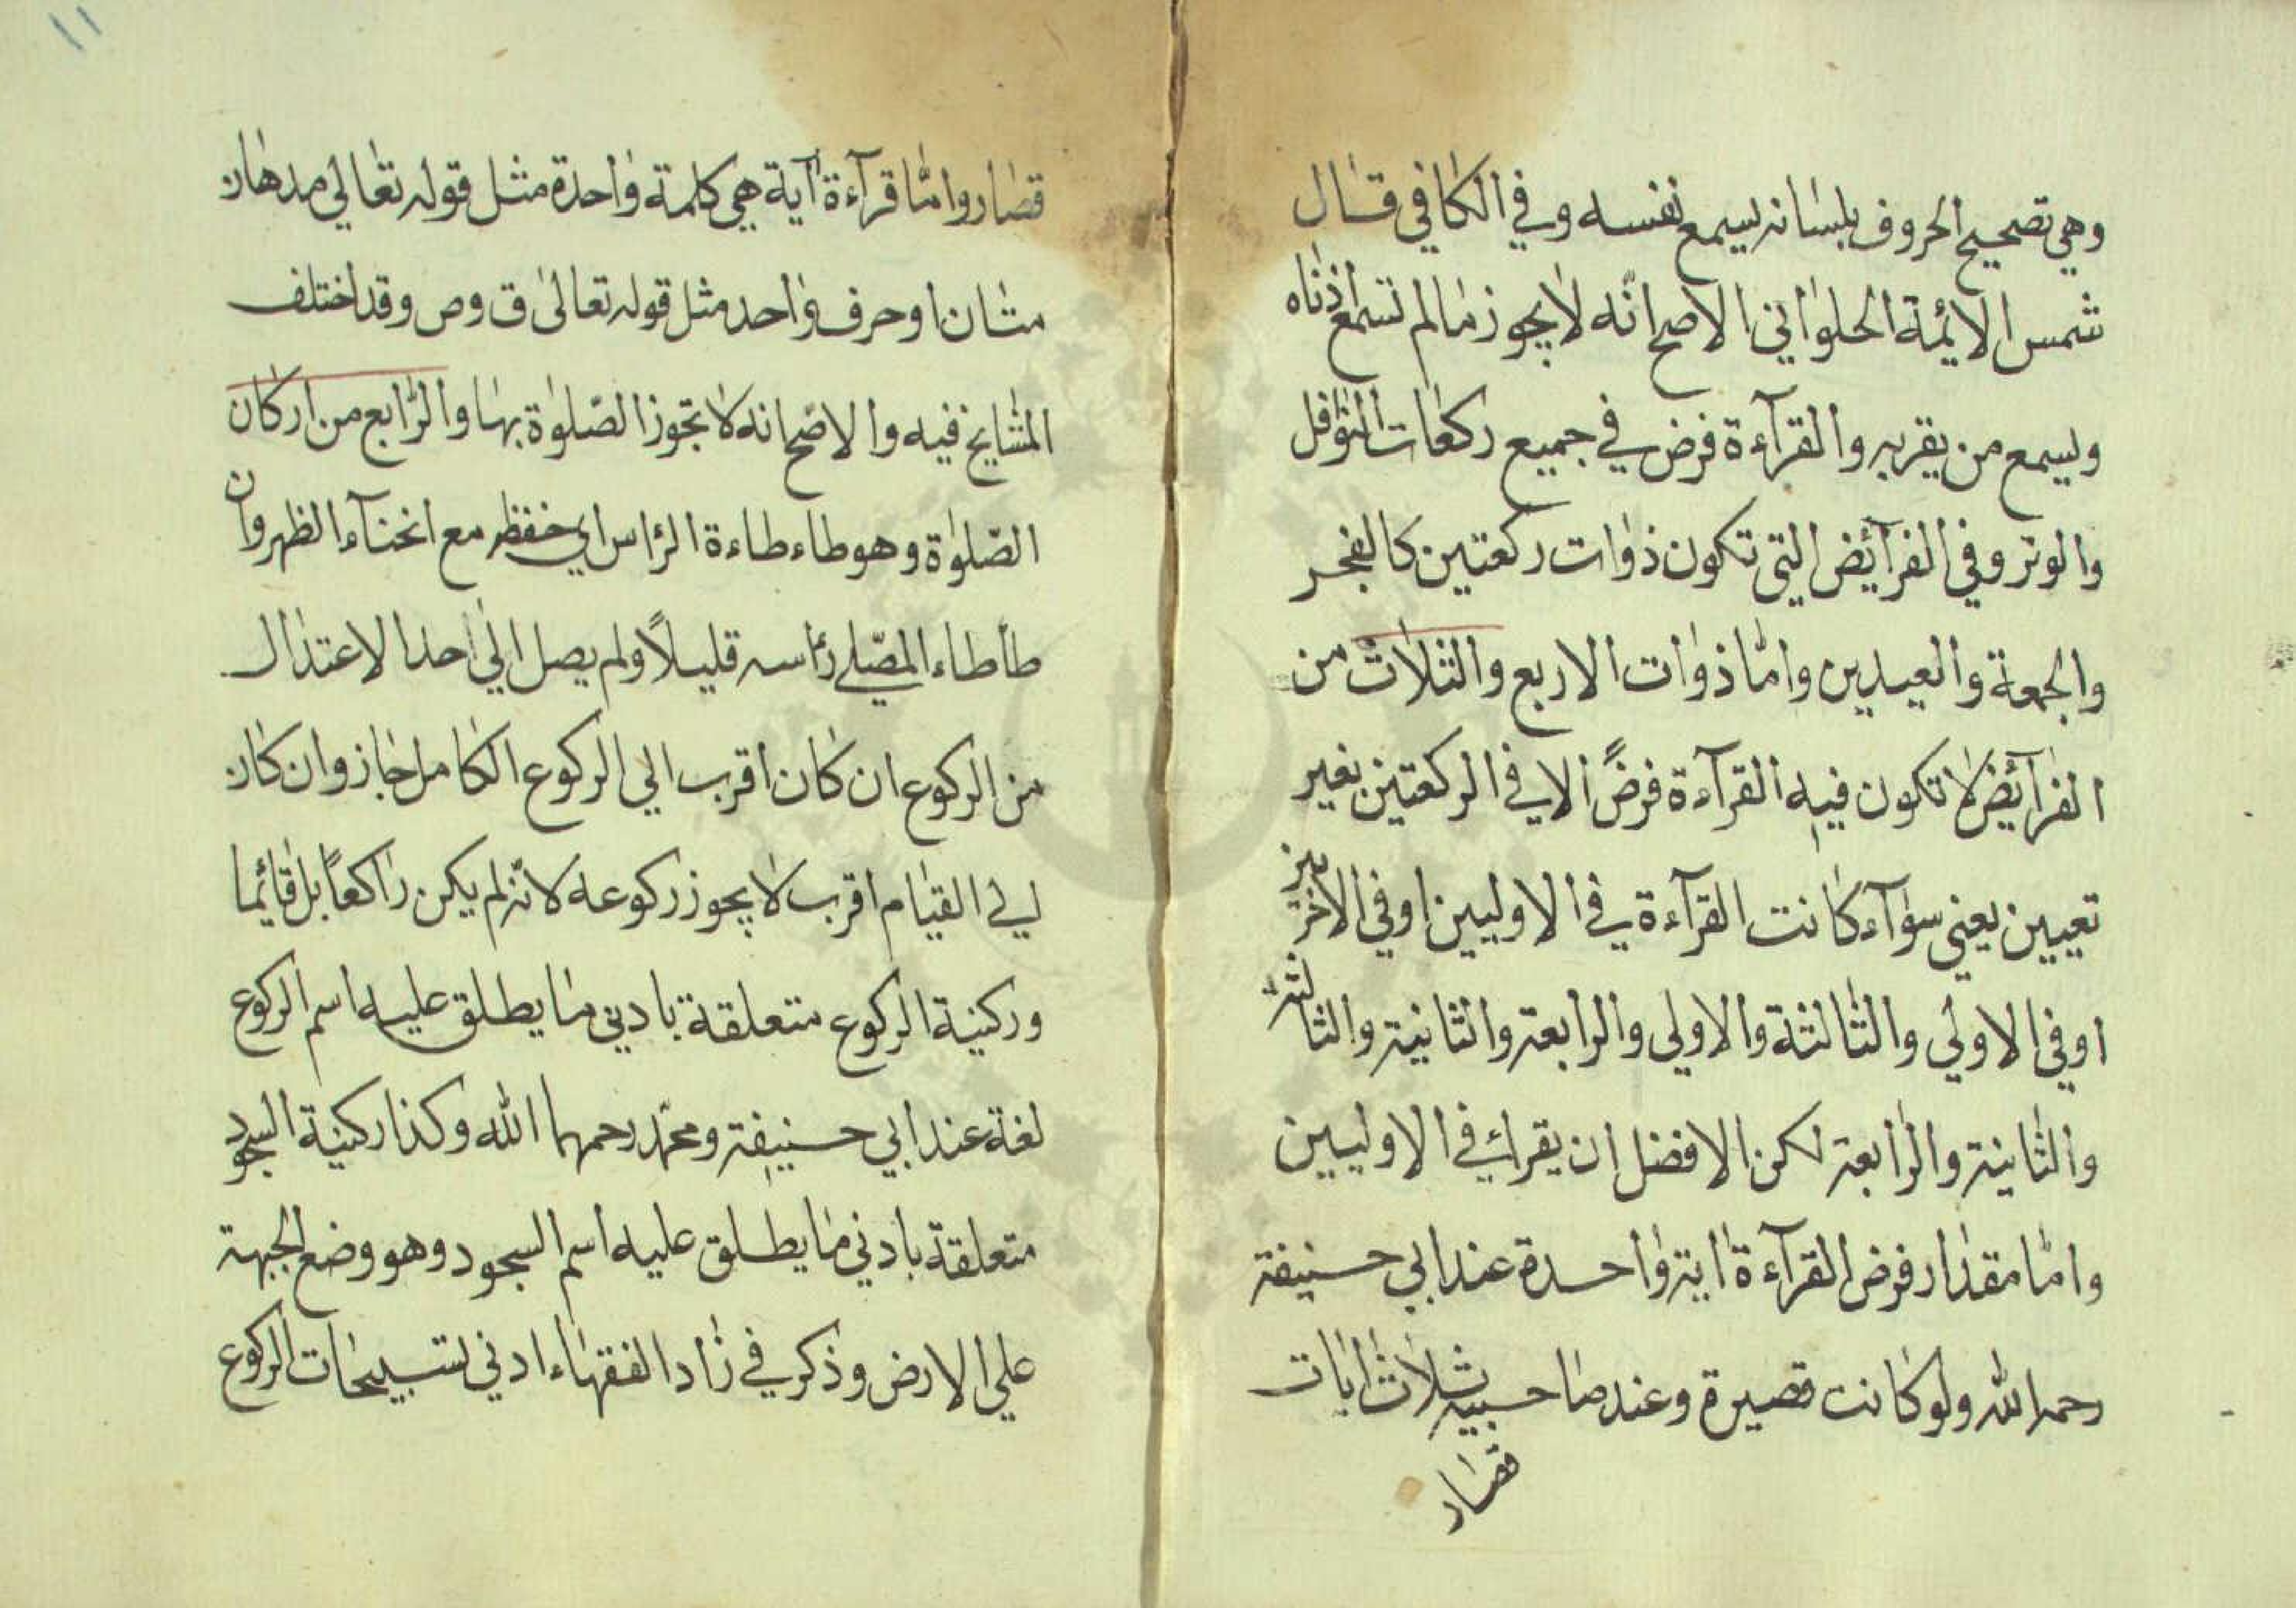 وهي تصحيح الحروف بلسانه يسمع نفسه وفي الكافي قال
شمس الائمة الحلواني الاصح انه لا يجوز مالم تسمع اذناه
ويسمع من يقربه والقرآءة فرض في جميع ركعات النوافل
والوتر وفي الفرآئض التي تكون ذوات ركعتين كالفجر
والجمعة والعيدين وامّا ذوات الاربع والثلاث من
الفرآئض لا تكون فيه القرآءة فرضًا الا في الركعتين بغير
تعيين يعني سوآء كانت القرآءة في الاوليين او في الاخريين
او في الاولي والثالثة والاولي والرابعة والثانية والثالثة
والثانية والرابعة لكن الافضل ان يقرائ في الاوليين
وامّا مقدار فرض القرآءة اية واحدة عند ابي حنيفة
رحمه الله ولو كانت قصيرة وعند صاحبيه ثلاث ايات
قصار
١١
قصار وامّا قرآءة آية هي كلمة واحدة مثل قوله تعالي مدهان
متان او حرف واحد مثل قوله تعالى ق وص وقد اختلف
المشايخ فيه والاصّح انه لا تجوز الصّلوة بها والرّابع من اركان
الصّلوة وهو طاء طاءة الرّاس اي خفظه مع انحنآء الظهر وان
طأطاء المصّلي رأسه قليلاً ولم يصل الي احد الاعتدال
من الركوع ان كان اقرب الي الركوع الكامل جاز وان كان
الي القيام اقرب لا يجوز ركوعه لانّه لم يكن راكعاً بل قائما
وركنية الركوع متعلقة بادني ما يطلق عليه اسم الركوع
لغة عند ابي حنيفة ومحمّد رحمهما الله وكذا ركنية السجود
متعلقة بادني ما يطلق عليه اسم السجود وهو وضع الجبهة
علي الارض وذكر في زاد الفقهاء ادني تسبيحات الركوع